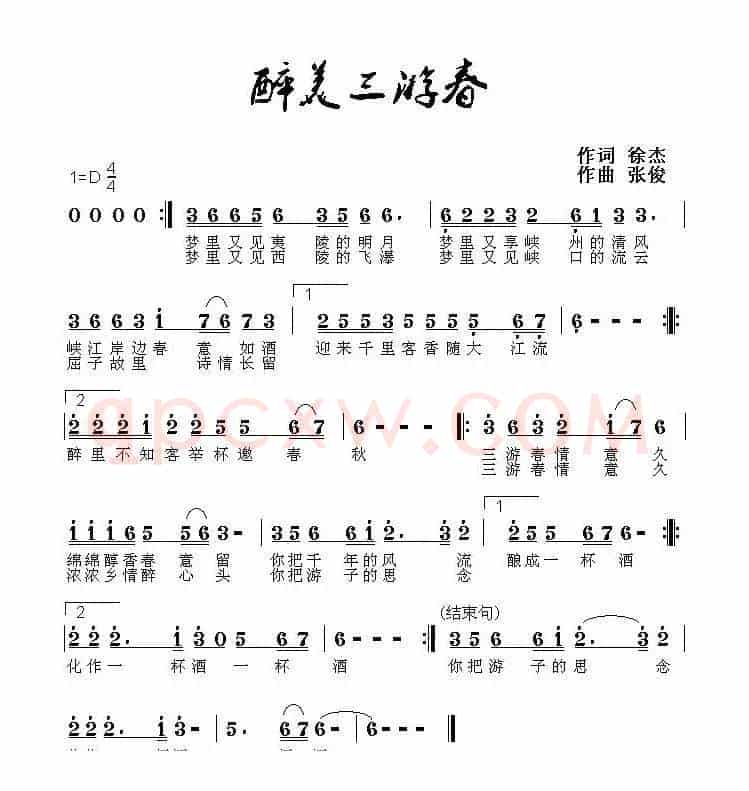 醉美三游春
作词 徐杰
作曲 张俊
1=D 4/4
0 0 0 0 :| 3 6 6 5 6 3 5 6 6. | 6 2 2 3 2 6 1 3 3. |
梦里又见夷 陵的明月 梦里又享峡 州的清风
梦里又见西 陵的飞瀑 梦里又见峡 口的流云
1
3 6 6 3 1 7 6 7 3 | 2 5 5 3 5 5 5 5 6 7 | 6 - - - :|
峡江岸边春 意 如酒 迎来千里客香随大 江流
屈子故里 诗情长留
2
2 2 2 1 2 2 5 5 6 7 | 6 - - - |: 3 6 3 2 1 7 6
醉里不知客举杯邀 春 秋 三游春情 意 久
三游春情 意 久
1
1 1 1 6 5 5 6 3 - | 3 5 5 6 1 2. 3 2 | 2 5 5 6 7 6 - :|
绵绵醇香春 意 留 你把千 年的风 流 酿成一 杯酒
浓浓乡情醉 心 头 你把游 子的思 念
2
(结束句)
2 2 2. 1 3 0 5 6 7 | 6 - - - :| 3 5 6 6 1 2. 3 2
化作一 杯酒一杯 酒 你把游 子的思 念
2 2 2. 1 3 - | 5. 6 7 6 - | 6 - - - ||
qpcxw.com